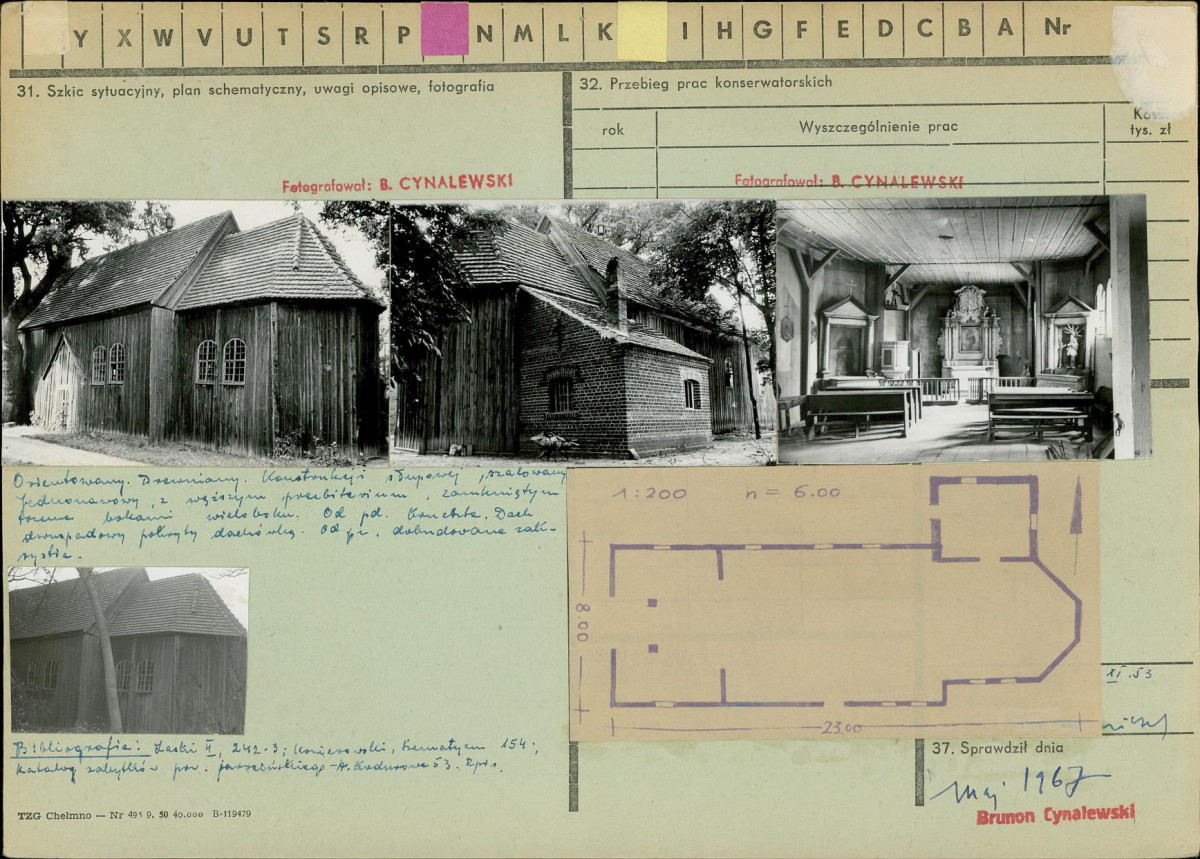 Y X W V U T S R P N M L K I H G F E D C B A Nr
31. Szkic sytuacyjny, plan schematyczny, uwagi opisowe, fotografia
32. Przebieg prac konserwatorskich
rok
Wyszczególnienie prac
tys. zł
Fotografował: B. CYNALEWSKI
Fotografował: B. CYNALEWSKI
Orientowany. Drewniany. Konstrukcji słupowej, szalowany
Jednonawowy, z węższym prezbiterium, zamkniętym
trzema bokami wieloboku. Od pd. Kruchta. Dach
dwuspadowy pokryty dachówką. Od pł. dobudowana zakr-
systia.
1:200 n = 6.00
8.00
23.00
XI.53
Bibliografia: Łaski II, 242-3; 154;
Katalog zabytków pow. jarocińskiego - 53.
37. Sprawdził dnia
Maj 1967
Brunon Cynalewski
TZG Chełmno — Nr 495 9. 50 40.000 B-119479